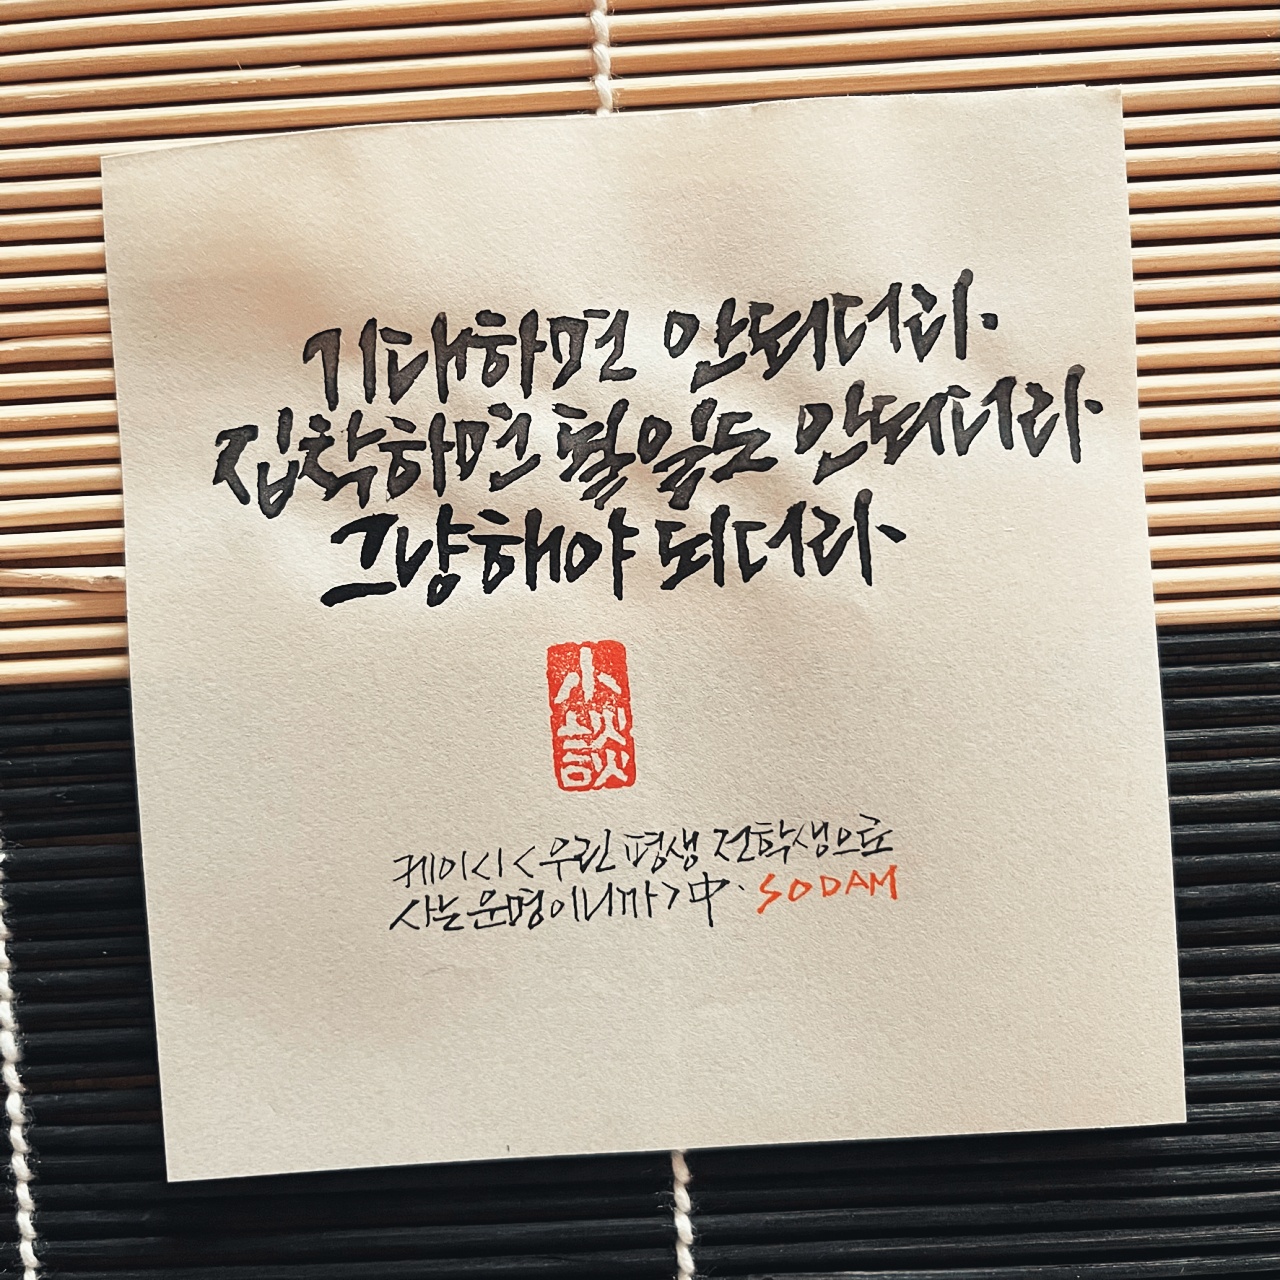 기대하면 안되더라.
집착하면 될일도 안되더라.
그냥해야 되더라.
小談
케이시 <우린 평생 전학생으로
사는 운명이니까> 中. SODAM